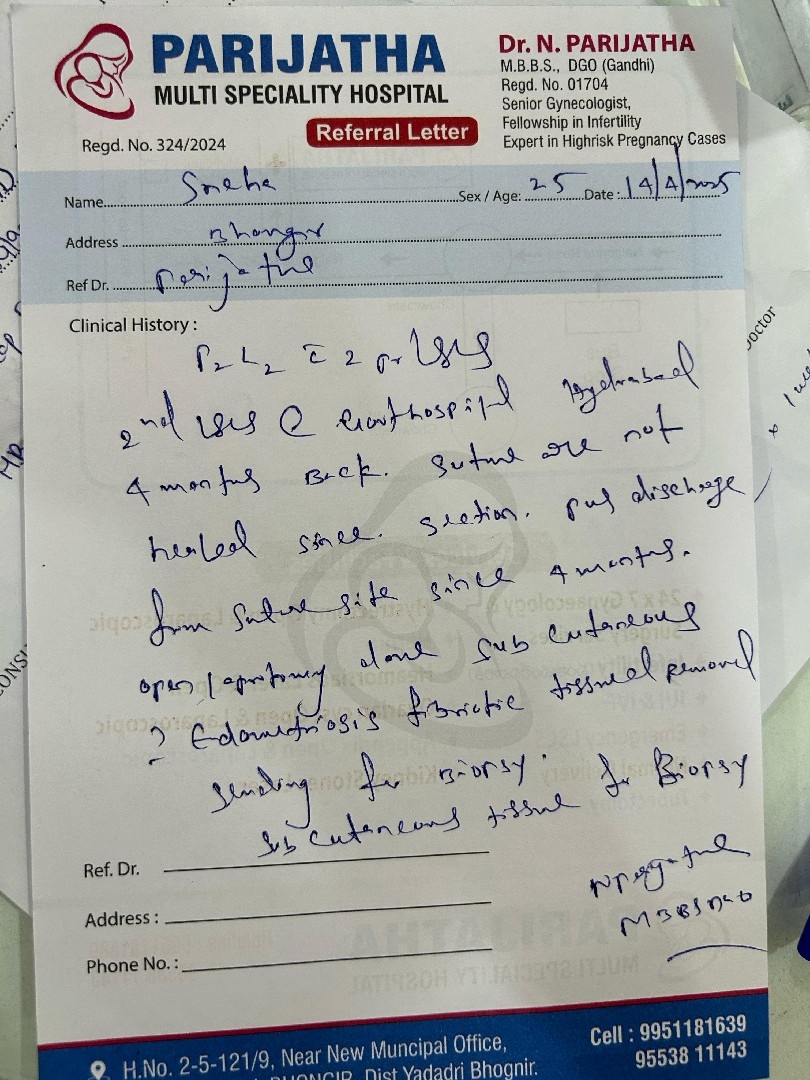 PARIJATHA
MULTI SPECIALITY HOSPITAL
Regd. No. 324/2024
Referral Letter
Dr. N. PARIJATHA
M.B.B.S., DGO (Gandhi)
Regd. No. 01704
Senior Gynecologist,
Fellowship in Infertility
Expert in Highrisk Pregnancy Cases
Name Sneha Sex / Age: 25 Date : 14/4/2025
Address Bhongir
Ref Dr. Parijatha
Clinical History :
P2L2 c̄ 2 pr LSCS
2nd LSCS @ Hyderabad
4 months Back. Suture are not
healed since. section. pus discharge
from suture site since 4 months.
open laprotomy done sub cutaneous
? Endometriosis fibriotic tissued removed
sending for Biopsy.
sub cutaneous tissue for Biopsy
Ref. Dr.
Address :
Phone No. :
MBBS DGO
H.No. 2-5-121/9, Near New Muncipal Office,
BHONGIR, Dist Yadadri Bhognir.
Cell : 9951181639
95538 11143